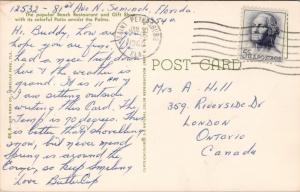 12532 - 81st Ave N. Seminole, Florida.
33540.
The popular Beach Restaurant and Gift Shop
with its colorful Patio amidst the Palms.
Hi Buddy, Low are
hope you are fine,
had a nice trip down
here & the weather
is grand. It is 11 AM &
I am sitting outside
writing this Card. The
Temp is 70 degrees. This
is better than shovelling
snow, but never mind
Spring is around the
Corner, so keep Smiling
Love Buttercup
ST. PETERSBURG
FLA.
5¢ U.S. POSTAGE
POST CARD
Mrs A. Hill
359. Riverside Dr
LONDON
ONTARIO
Canada